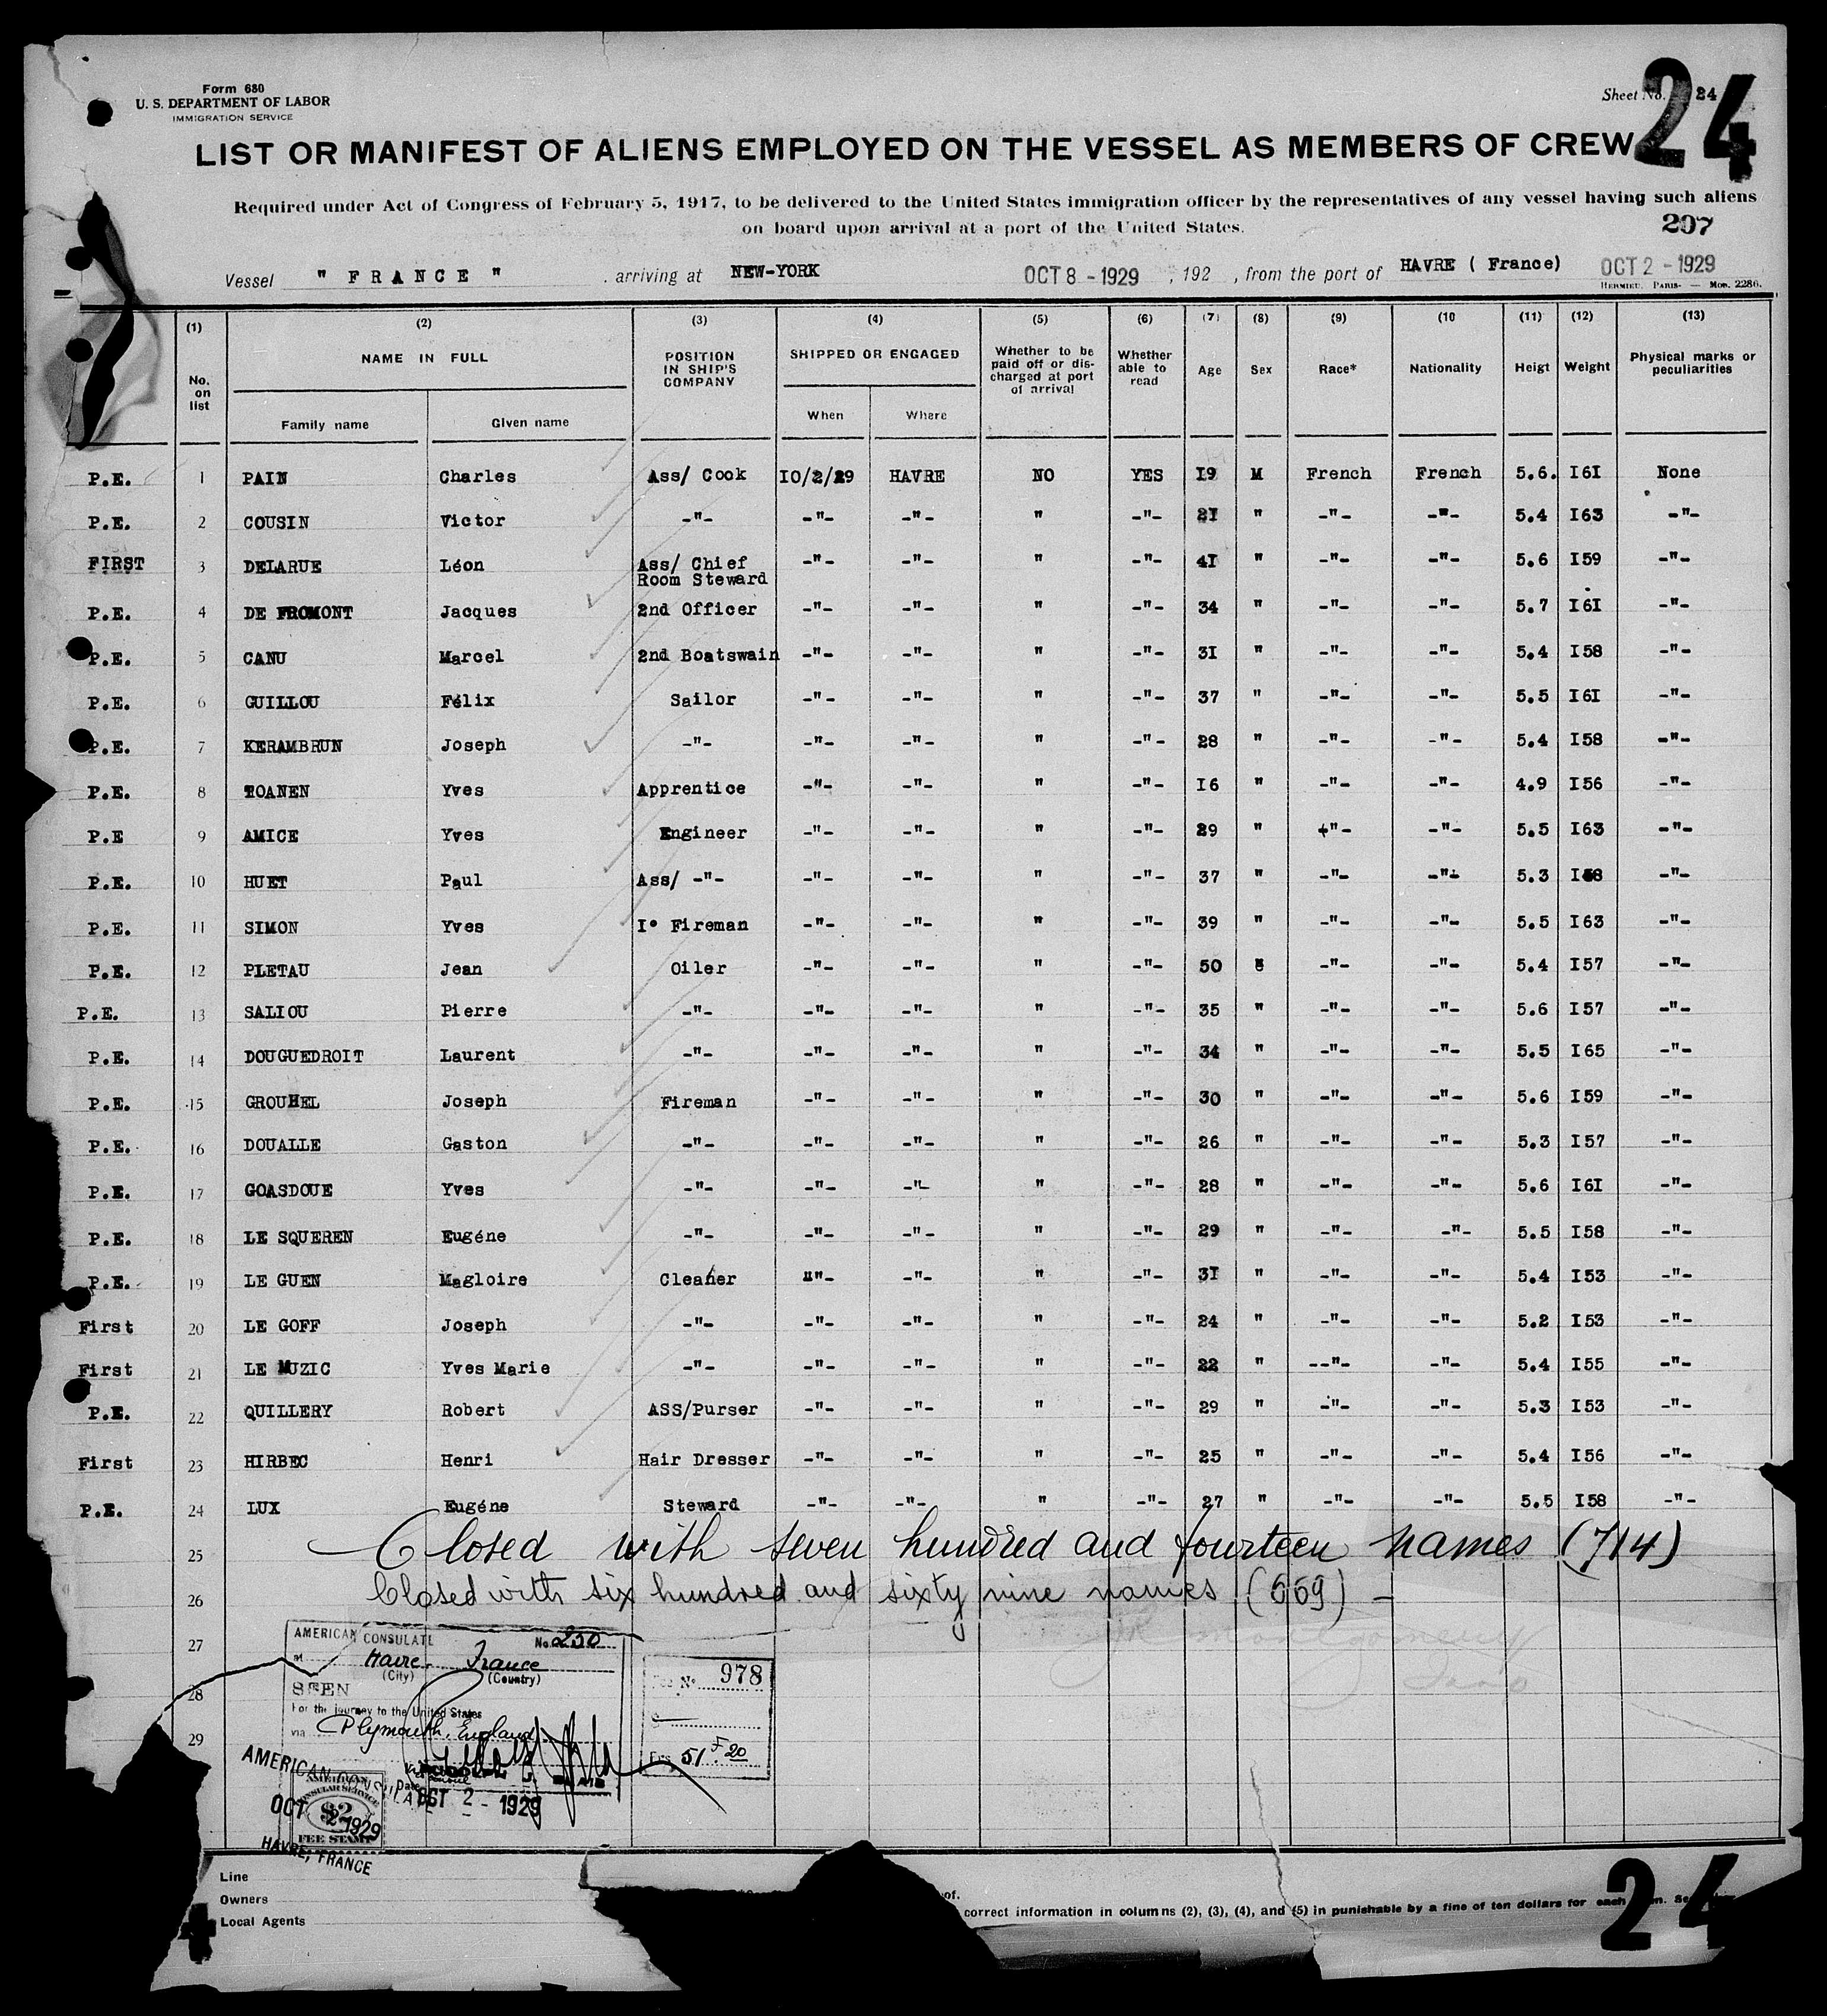 Form 680
U. S. DEPARTMENT OF LABOR
IMMIGRATION SERVICE
Sheet No. 24
24
LIST OR MANIFEST OF ALIENS EMPLOYED ON THE VESSEL AS MEMBERS OF CREW
Required under Act of Congress of February 5, 1917, to be delivered to the United States immigration officer by the representatives of any vessel having such aliens
on board upon arrival at a port of the United States.
207
Vessel " FRANCE " arriving at NEW-YORK OCT 8 - 1929 , 192 , from the port of HAVRE ( France) OCT 2 - 1929
HERMIEU. PARIS- — Mod. 2286.
(1) (2) (3) (4) (5) (6) (7) (8) (9) (10 (11) (12) (13)
No. on list NAME IN FULL POSITION IN SHIP'S COMPANY SHIPPED OR ENGAGED Whether to be paid off or discharged at port of arrival Whether able to read Age Sex Race* Nationality Heigt Weight Physical marks or peculiarities
Family name Given name When Where
P.E. 1 PAIN Charles Ass/ Cook 10/2/29 HAVRE NO YES I9 M French French 5.6. I6I None
P.E. 2 COUSIN Victor -"- -"- -"- " -"- 2I " -"- -"- 5.4 I63 -"-
FIRST 3 DELARUE Léon Ass/ Chief Room Steward -"- -"- " -"- 4I " -"- -"- 5.6 I59 -"-
P.E. 4 DE FROMONT Jacques 2nd Officer -"- -"- " -"- 34 " -"- -"- 5.7 I6I -"-
P.E. 5 CANU Marcel 2nd Boatswain -"- -"- " -"- 3I " -"- -"- 5.4 I58 -"-
P.E. 6 GUILLOU Félix Sailor -"- -"- " -"- 37 " -"- -"- 5.5 I6I -"-
P.E. 7 KERAMBRUN Joseph -"- -"- -"- " -"- 28 " -"- -"- 5.4 I58 -"-
P.E. 8 TOANEN Yves Apprentice -"- -"- " -"- I6 " -"- -"- 4.9 I56 -"-
P.E 9 AMICE Yves Engineer -"- -"- " -"- 29 " -"- -"- 5.5 I63 -"-
P.E. 10 HUET Paul Ass/ -"- -"- -"- " -"- 37 " -"- -"- 5.3 I58 -"-
P.E. 11 SIMON Yves I° Fireman -"- -"- " -"- 39 " -"- -"- 5.5 I63 -"-
P.E. 12 PLETAU Jean Oiler -"- -"- " -"- 50 " -"- -"- 5.4 I57 -"-
P.E. 13 SALIOU Pierre -"- -"- -"- " -"- 35 " -"- -"- 5.6 I57 -"-
P.E. 14 DOUGUEDROIT Laurent -"- -"- -"- " -"- 34 " -"- -"- 5.5 I65 -"-
P.E. 15 GROUHEL Joseph Fireman -"- -"- " -"- 30 " -"- -"- 5.6 I59 -"-
P.E. 16 DOUALLE Gaston -"- -"- -"- " -"- 26 " -"- -"- 5.3 I57 -"-
P.E. 17 GOASDOUE Yves -"- -"- -"- " -"- 28 " -"- -"- 5.6 I6I -"-
P.E. 18 LE SQUEREN Eugéne -"- -"- -"- " -"- 29 " -"- -"- 5.5 I58 -"-
P.E. 19 LE GUEN Magloire Cleaner -"- -"- " -"- 3I " -"- -"- 5.4 I53 -"-
First 20 LE GOFF Joseph -"- -"- -"- " -"- 24 " -"- -"- 5.2 I53 -"-
First 21 LE MUZIC Yves Marie -"- -"- -"- " -"- 22 " --"- -"- 5.4 I55 -"-
P.E. 22 QUILLERY Robert ASS/Purser -"- -"- " -"- 29 " -"- -"- 5.3 I53 -"-
First 23 HIRBEC Henri Hair Dresser -"- -"- " -"- 25 " -"- -"- 5.4 I56 -"-
P.E. 24 LUX Eugéne Steward -"- -"- " -"- 27 " -"- -"- 5.5 I58 -"-
25 Closed with seven hundred and fourteen names (714)
26 Closed with six hundred and sixty nine names (669) -
27
28
29
AMERICAN CONSULATE No. 250
at Havre France
(City) (Country)
SEEN
For the journey to the United States
via Plymouth, England
Date OCT 2 - 1929
Fee No. 978
$
Frs 51 F. 20
AMERICAN CONSULATE
OCT 2 1929
HAVRE, FRANCE
AMERICAN CONSULAR SERVICE
$2
FEE STAMP
Line
Owners
Local Agents
of.
correct information in columns (2), (3), (4), and (5) in punishable by a fine of ten dollars for each
24